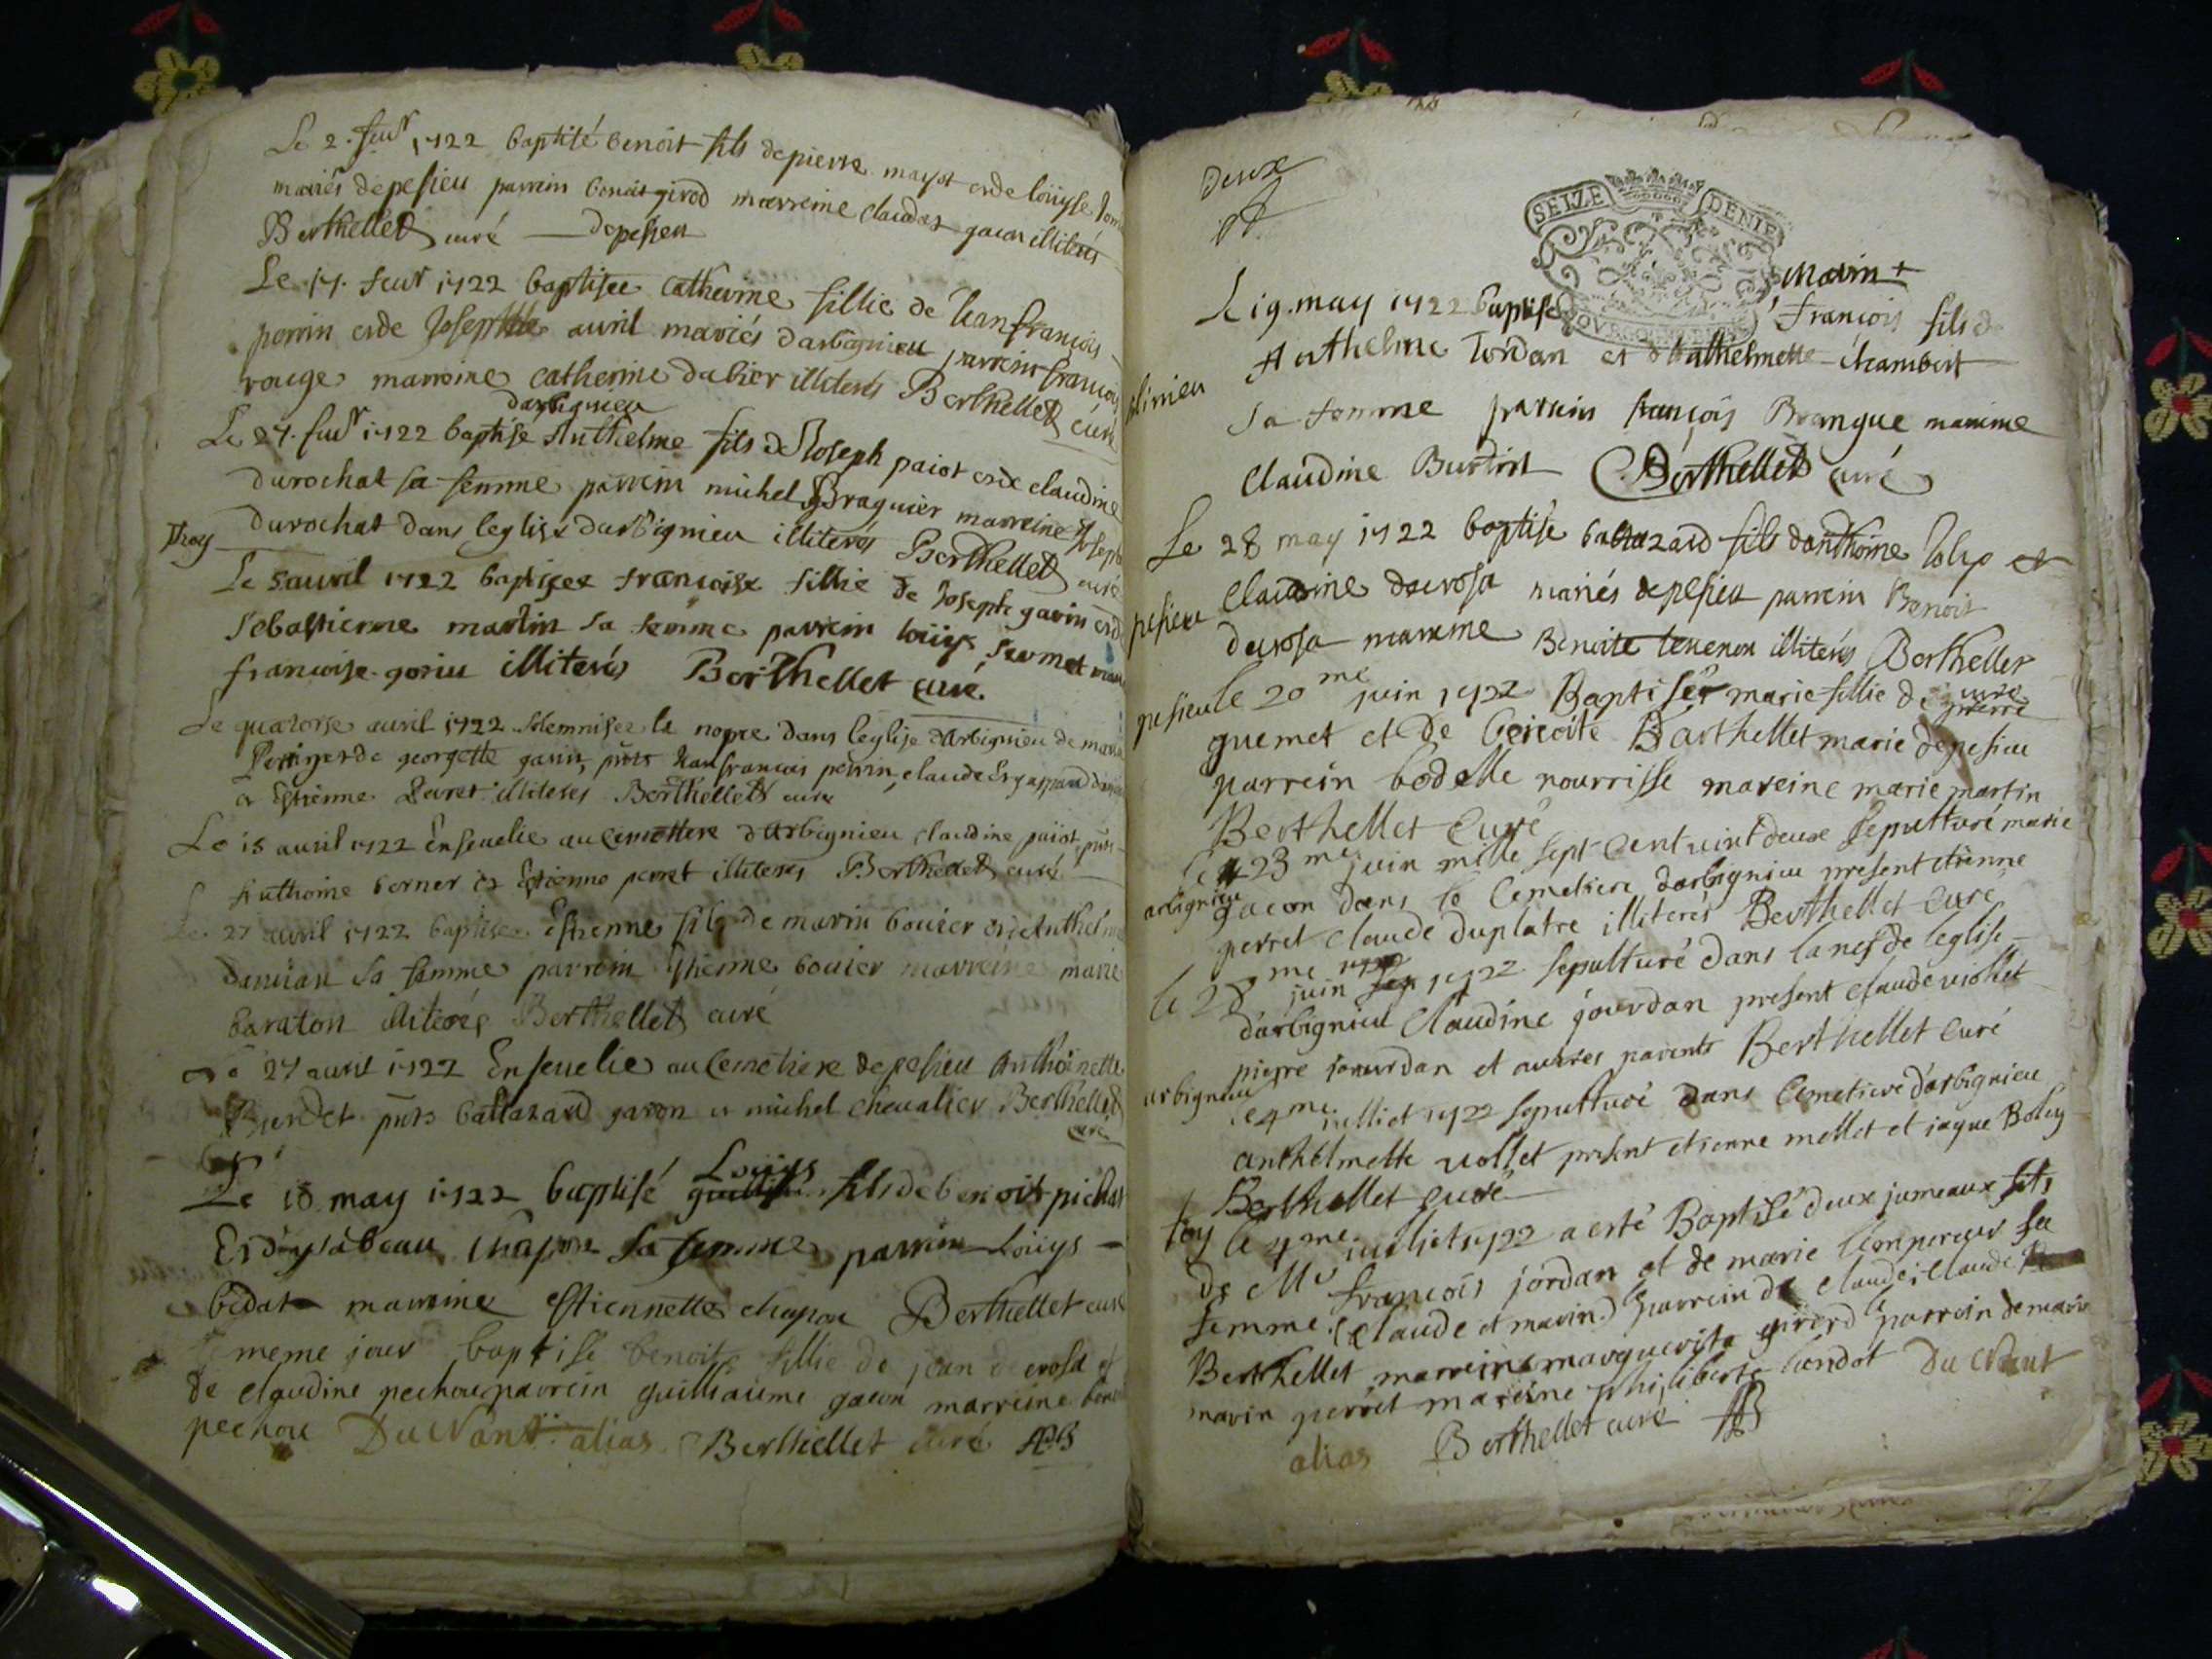 Le 2. feur 1722 baptisé benoit fils de pierre mayot et de loüyse
mariés de pesieu parrein benoit girod marreine claudas gacon illiterés
Berthellet curé — de pesieu
Le 17. feur 1722 baptisee catherine fillie de Jean françois
perrin et de Josephte auril mariés darbignieu parrein françois
rouge marreine catherine dubier illiterés Berthellet curé
darbignieu
Le 27. feur 1722 baptisé Anthelme fils de Joseph paiot et de claudine
durochat sa femme parrein michel Braguier marreine Joseph
durochat dans leglise darbignieu illiterés Berthellet curé
Thoy
Le 5 auril 1722 baptisee françoise fillie de Joseph gavin et de
sebastienne martin sa femme parrein loüys sermet
françoise goriu illiterés Berthellet curé.
Le quatorse auril 1722 solemnisee la nopce dans leglise darbignieu de
Perrin et de georgette gavin, pnts Jean françois perrin, claude
et Estienne Peret illiteres Berthellet curé
Le 15 auril 1722 Enseuelie au cemettere d'Arbignieu claudine paiot pnts
Anthoine berner et Estienne perret illiteres Berthellet curé
Le 27 auril 1722 baptise Estienne fils de marin bouier et de Anthelme
damian sa femme parrein Estienne bouier marreine marie
baraton illiterés Berthellet curé
27 auril 1722 Enseuelie au Cemetiere de pesieu Anthoinette
Burdet pnts baltazard gacon et michel cheualier Berthellet
curé
Loüys
Le 10 may 1722 baptisé fils de benoit pichat
Et dysabeau chapou sa femme parrein Loüys
bidat marreine Estiennette chapou Berthellet curé
Le meme jour baptise benoite fillie de jean derosa et
de claudine pechou parrein guilliaume gacon marreine
pechou Du Nant alias Berthellet curé
Deux
SEIZE DENIE
Marin +
Le 19. may 1722 baptise françois fils d
Anthelme Jordan et d'Anthelmette chambert
sa femme parrein françois Brangue marreine
Claudine Burdin Berthellet curé
Le 28 may 1722 baptise baltazard fils danthoine et
pesieu
claudine derosa mariés de pesieu parrein Benoit
derosa marreine Benoite teuenon illiterés Berthellet
curé
pesieu le 20me juin 1722 Baptisée marie fillie de pierre
guemet et de benoite Barthellet marie de pesieu
parrein bodelle nourrisse mareine marie martin
Berthellet Curé
le 23me juin mille sept Cent vint deux sepulturé marie
arbignieu
gacon dans le Cemetiere darbignieu present etienne
perret claude duplatre illiterés Berthellet Curé
le 28me juin 1722 sepulturé dans la nef de leglise
darbignieu Claudine jourdan present claude uiollet
pierre jourdan et autres parents Berthellet Curé
arbignieu
le 4me iulliet 1722 sepulturé dans Cemetiere darbignieu
anthelmette uollet present etienne mellet et iaque Boley
Berthellet curé
toy le 4me iulliet 1722 a esté Baptisé deux jumeaux fils
de Mr françois jordan et de marie lempereur sa
femme. (claude et marin.) le parrein de claude: claude
Berthellet marreine marguerite girerd le parrein de marin
marin perret mareine philiberte liendot Du Nant
alias Berthellet curé